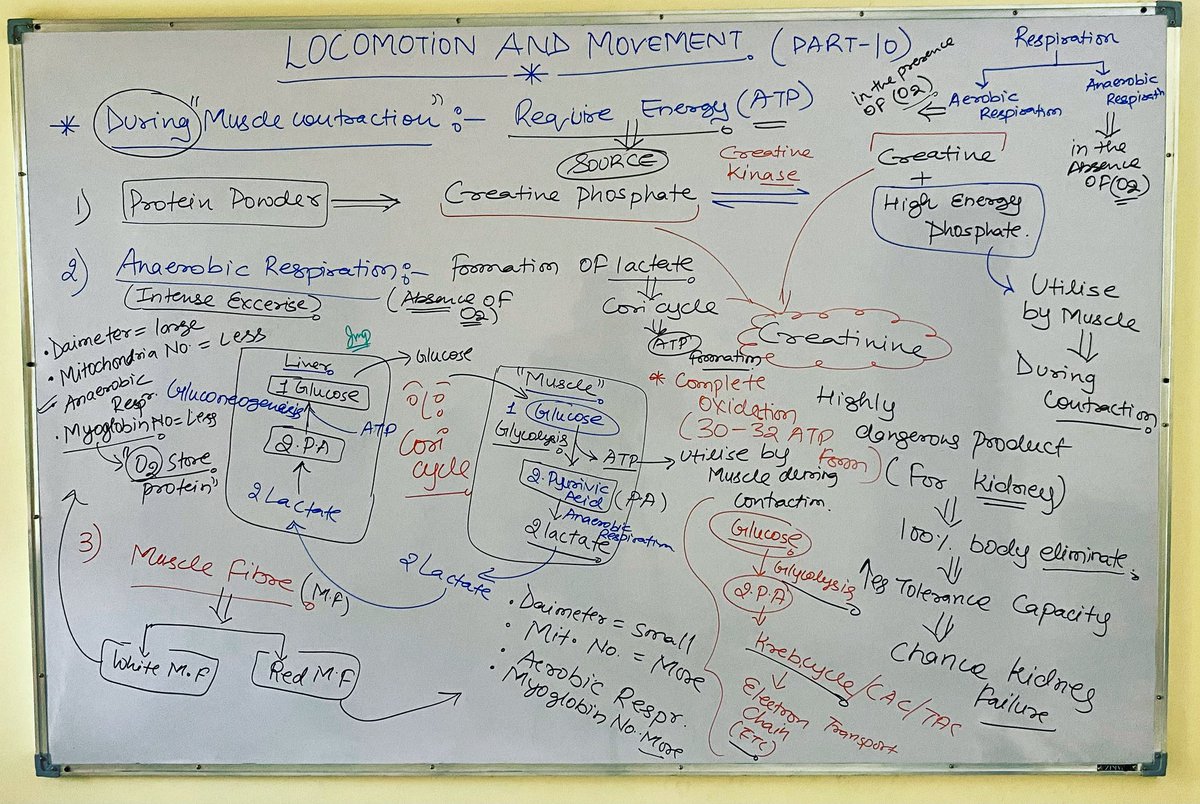 LOCOMOTION AND MOVEMENT. (PART-10)
* During "Muscle contraction" :- Require Energy (ATP)
SOURCE
1) Protein Powder ⇒ Creatine Phosphate
Creatine
Kinase
Creatine
+
High Energy
Phosphate.
Utilise
by Muscle
During
Contraction
Respiration
Aerobic
Respiration
in the presence
OF (O2)
Anaerobic
Respirath
in the
Absence
OF (O2)
Creatinine
Highly
dangerous product
(For Kidney)
100% body eliminate.
↑es Tolerance Capacity
Chance kidney
Failure
2) Anaerobic Respiration :- Formation OF lactate
(Intense Excerise) (Absence OF
O2)
Cori cycle
ATP
Formation
• Daimeter = large
• Mitochondria No. = Less
✓ Anaerobic
Respr.
• Myoglobin No = Less
"O2 Store
protein"
Liver
1 Glucose
Gluconeogenesis
ATP
2 · PA
2 Lactate
Imp
Glucose
Cori
cycle
"Muscle"
1 Glucose
Glycolysis
ATP
2 · Pyruvic
Acid (PA)
Anaerobic
Respiration
2 lactate
2 Lactate
Utilise by
Muscle during
contaction.
* Complete
Oxidation
(30-32 ATP
Form)
Glucose
Glycolysis
2 · P.A
Kreb cycle/CAC/TAC
Electron Transport
Chain
(ETC)
3) Muscle Fibre (M.F)
White M.F
Red M.F
• Daimeter = Small
• Mit. No. = More
• Aerobic Respr.
• Myoglobin No. More